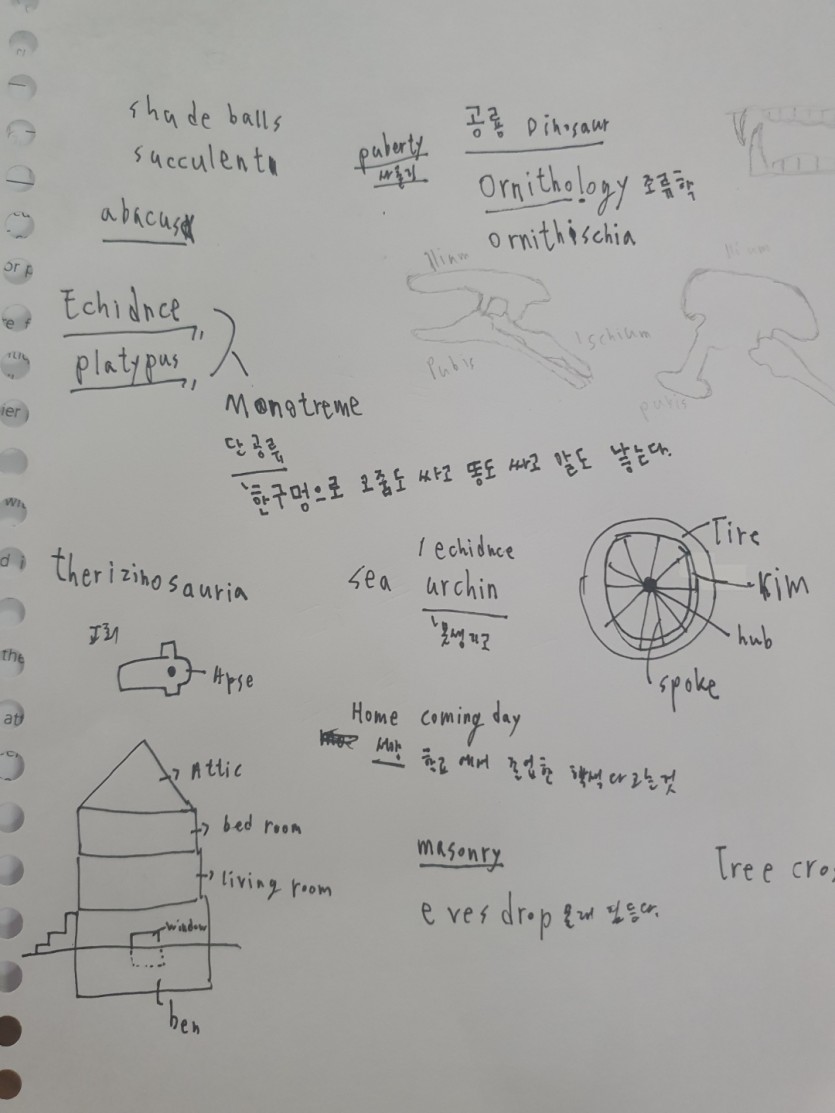 shade balls
succulent
abacus
puberty
공룡 Dinosaur
Ornithology 조류학
ornithischia
Echidnce
platypus
Monotreme
단공류
한구멍으로 오줌도 싸고 똥도 싸고 알도 낳는다.
Ilium
Ischium
Pubis
Ilium
pubis
therizinosauria
echidnce
sea urchin
못생기고
Tire
Rim
hub
spoke
Apse
Home coming day
서양 학교에서 졸업한
Attic
bed room
living room
window
ben
masonry
eves drop 몰래
Tree cros